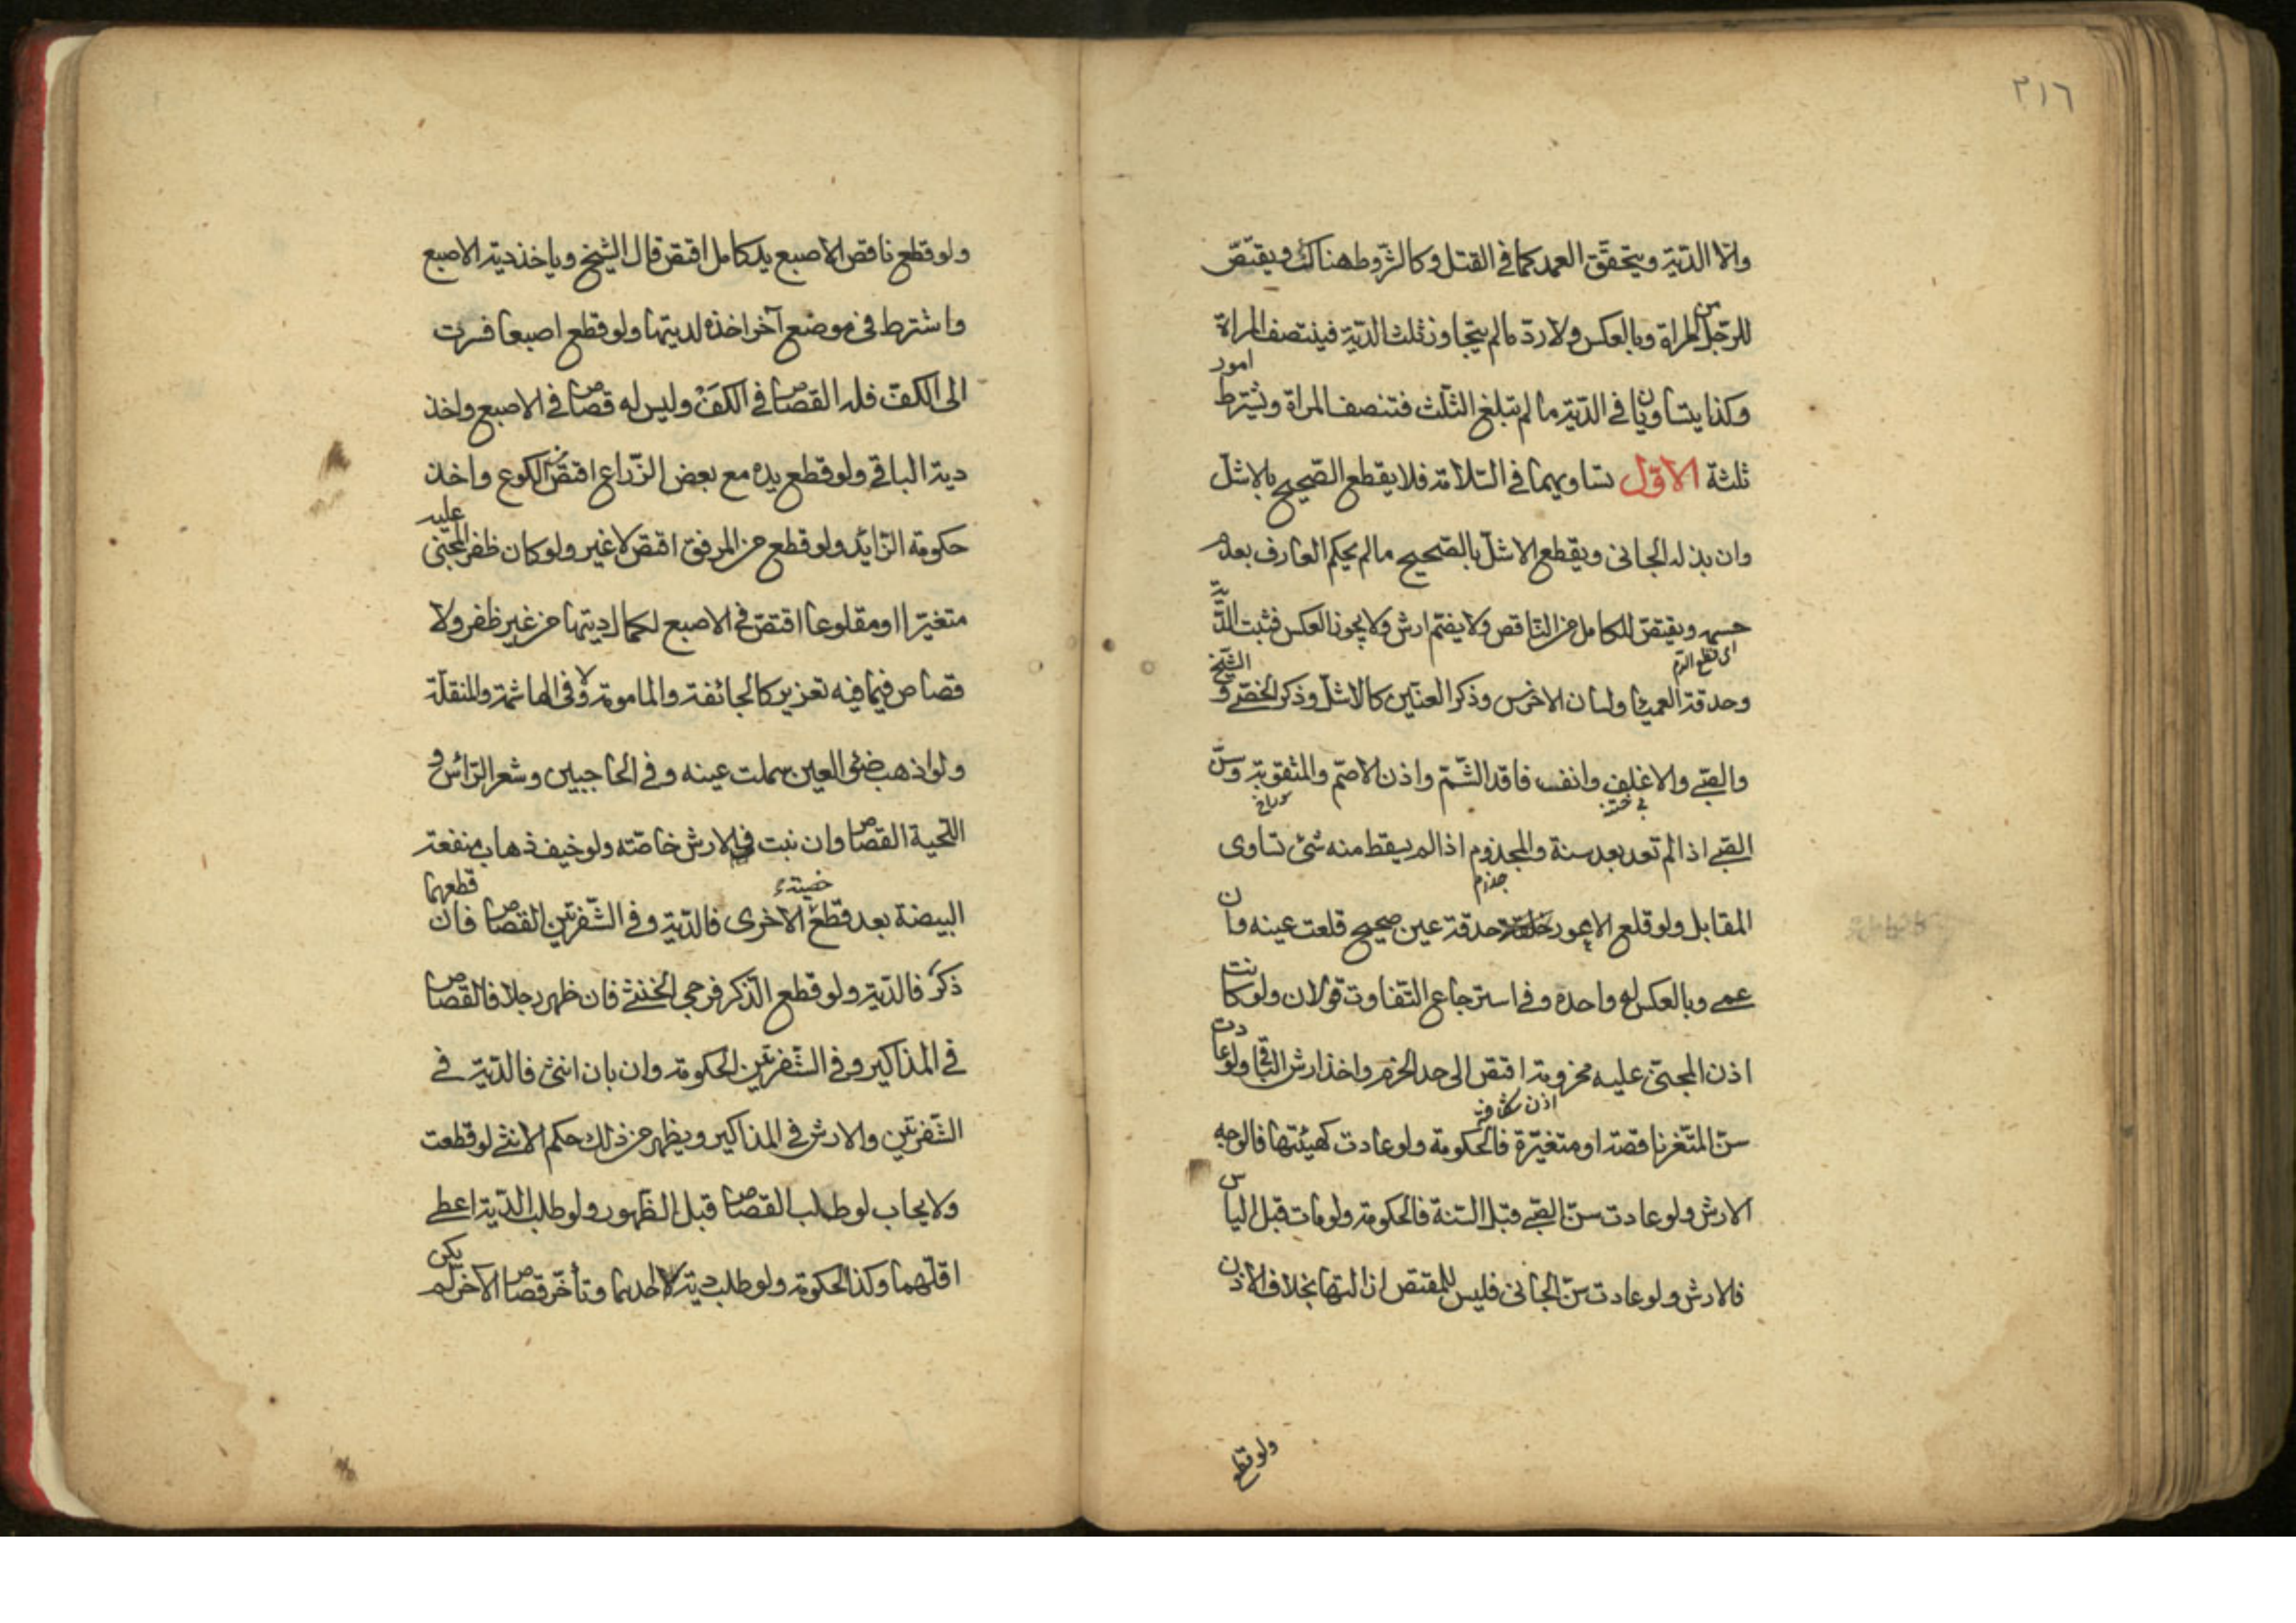 ٣١٦
والا الدّية ويتحقّق العمد كما فى القتل وكالشّروط هناك ويقتصّ
للرّجل من المراة وبالعكس ولا ردّ ما لم يتجاوز ثلث الدّية فينتصف المراة
وكذا يتساويان فى الدّية ما لم تبلغ الثّلث فتنصف المراة ويشترط امور
ثلثة الاوّل تساويهما فى السّلامة فلا يقطع الصّحيح بالاشلّ
وان بذله الجانى ويقطع الاشلّ بالصّحيح ما لم يحكم العارف بعدم
حسمه ويقتصّ للكامل من النّاقص ولا يضمّ ارش ولا يجوز العكس فثبت الدّية
اى قطع الدّم
وحدقة العمياء ولسان الاخرس وذكر العنّين كالاشلّ وذكر الخصّى والشّيخ
والصّبى والاغلف وانف فاقد الشّمّ واذن الاصمّ والمثقوبة وسنّ
الصّبى اذا لم تعد بعد سنة والمجذوم اذا لم يسقط منه شئ تساوى
جذام
المقابل ولو قلع الاعور حدقة عين صحيح قلعت عينه وان
عمى وبالعكس له واحدة وفى استرجاع التّفاوت قولان ولو كانت
اذن المجنى عليه مخرومة اقتصّ الى حد الخرم واخذ ارش الباقى ولو عادت
سنّ المثّغر ناقصة او متغيّرة فالحكومة ولو عادت كهيئتها فالوجه
الارش ولو عادت سنّ الصّبى قبل السّنة فالحكومة ولو مات قبل الياس
فالارش ولو عادت سنّ الجانى فليس للمقتص ازالتها بخلاف الاذن
ولو قطع
ولو قطع ناقص الاصبع يد كامل اقتص قال الشّيخ وياخذ دية الاصبع
واشترط فى موضع آخر اخذه لديتها ولو قطع اصبعا فسرت
الى الكفّ فله القصاص فى الكفّ وليس له قصاص فى الاصبع واخذ
دية الباقى ولو قطع يده مع بعض الذّراع اقتصّ من الكوع واخذ
حكومة الزّايد ولو قطع من المرفق اقتص لا غير ولو كان ظفر المجنى عليه
متغيّرا او مقلوعا اقتصّ فى الاصبع لكمال ديتها من غير ظفر ولا
قصاص فيما فيه تعزير كالجائفة والمامومة ولا فى الهاشمة والمنقلة
ولو اذهب ضوء العين سملت عينه وفى الحاجبين وشعر الرّاس و
اللّحية القصاص وان نبت فالارش خاصّته ولو خيف ذهاب منفعة
البيضة بعد قطع الاخرى فالدّية وفى الشّفرتين القصاص فان قطعهما
ذكر فالدّية ولو قطع الذّكر فرجى الخنثى فان ظهر رجلا فالقصاص
فى المذاكير وفى الشّفرتين الحكومة وان بان انثى فالدّية فى
الشّفرتين والارش فى المذاكير ويظهر من ذلك حكم الانثى لو قطعت
ولا يجاب لو طلب القصاص قبل الظّهور ولو طلب الدّية اعطى
اقلّهما وكذا الحكومة ولو طلب دية احدهما وتأخّر قصاص الآخر لم يكن